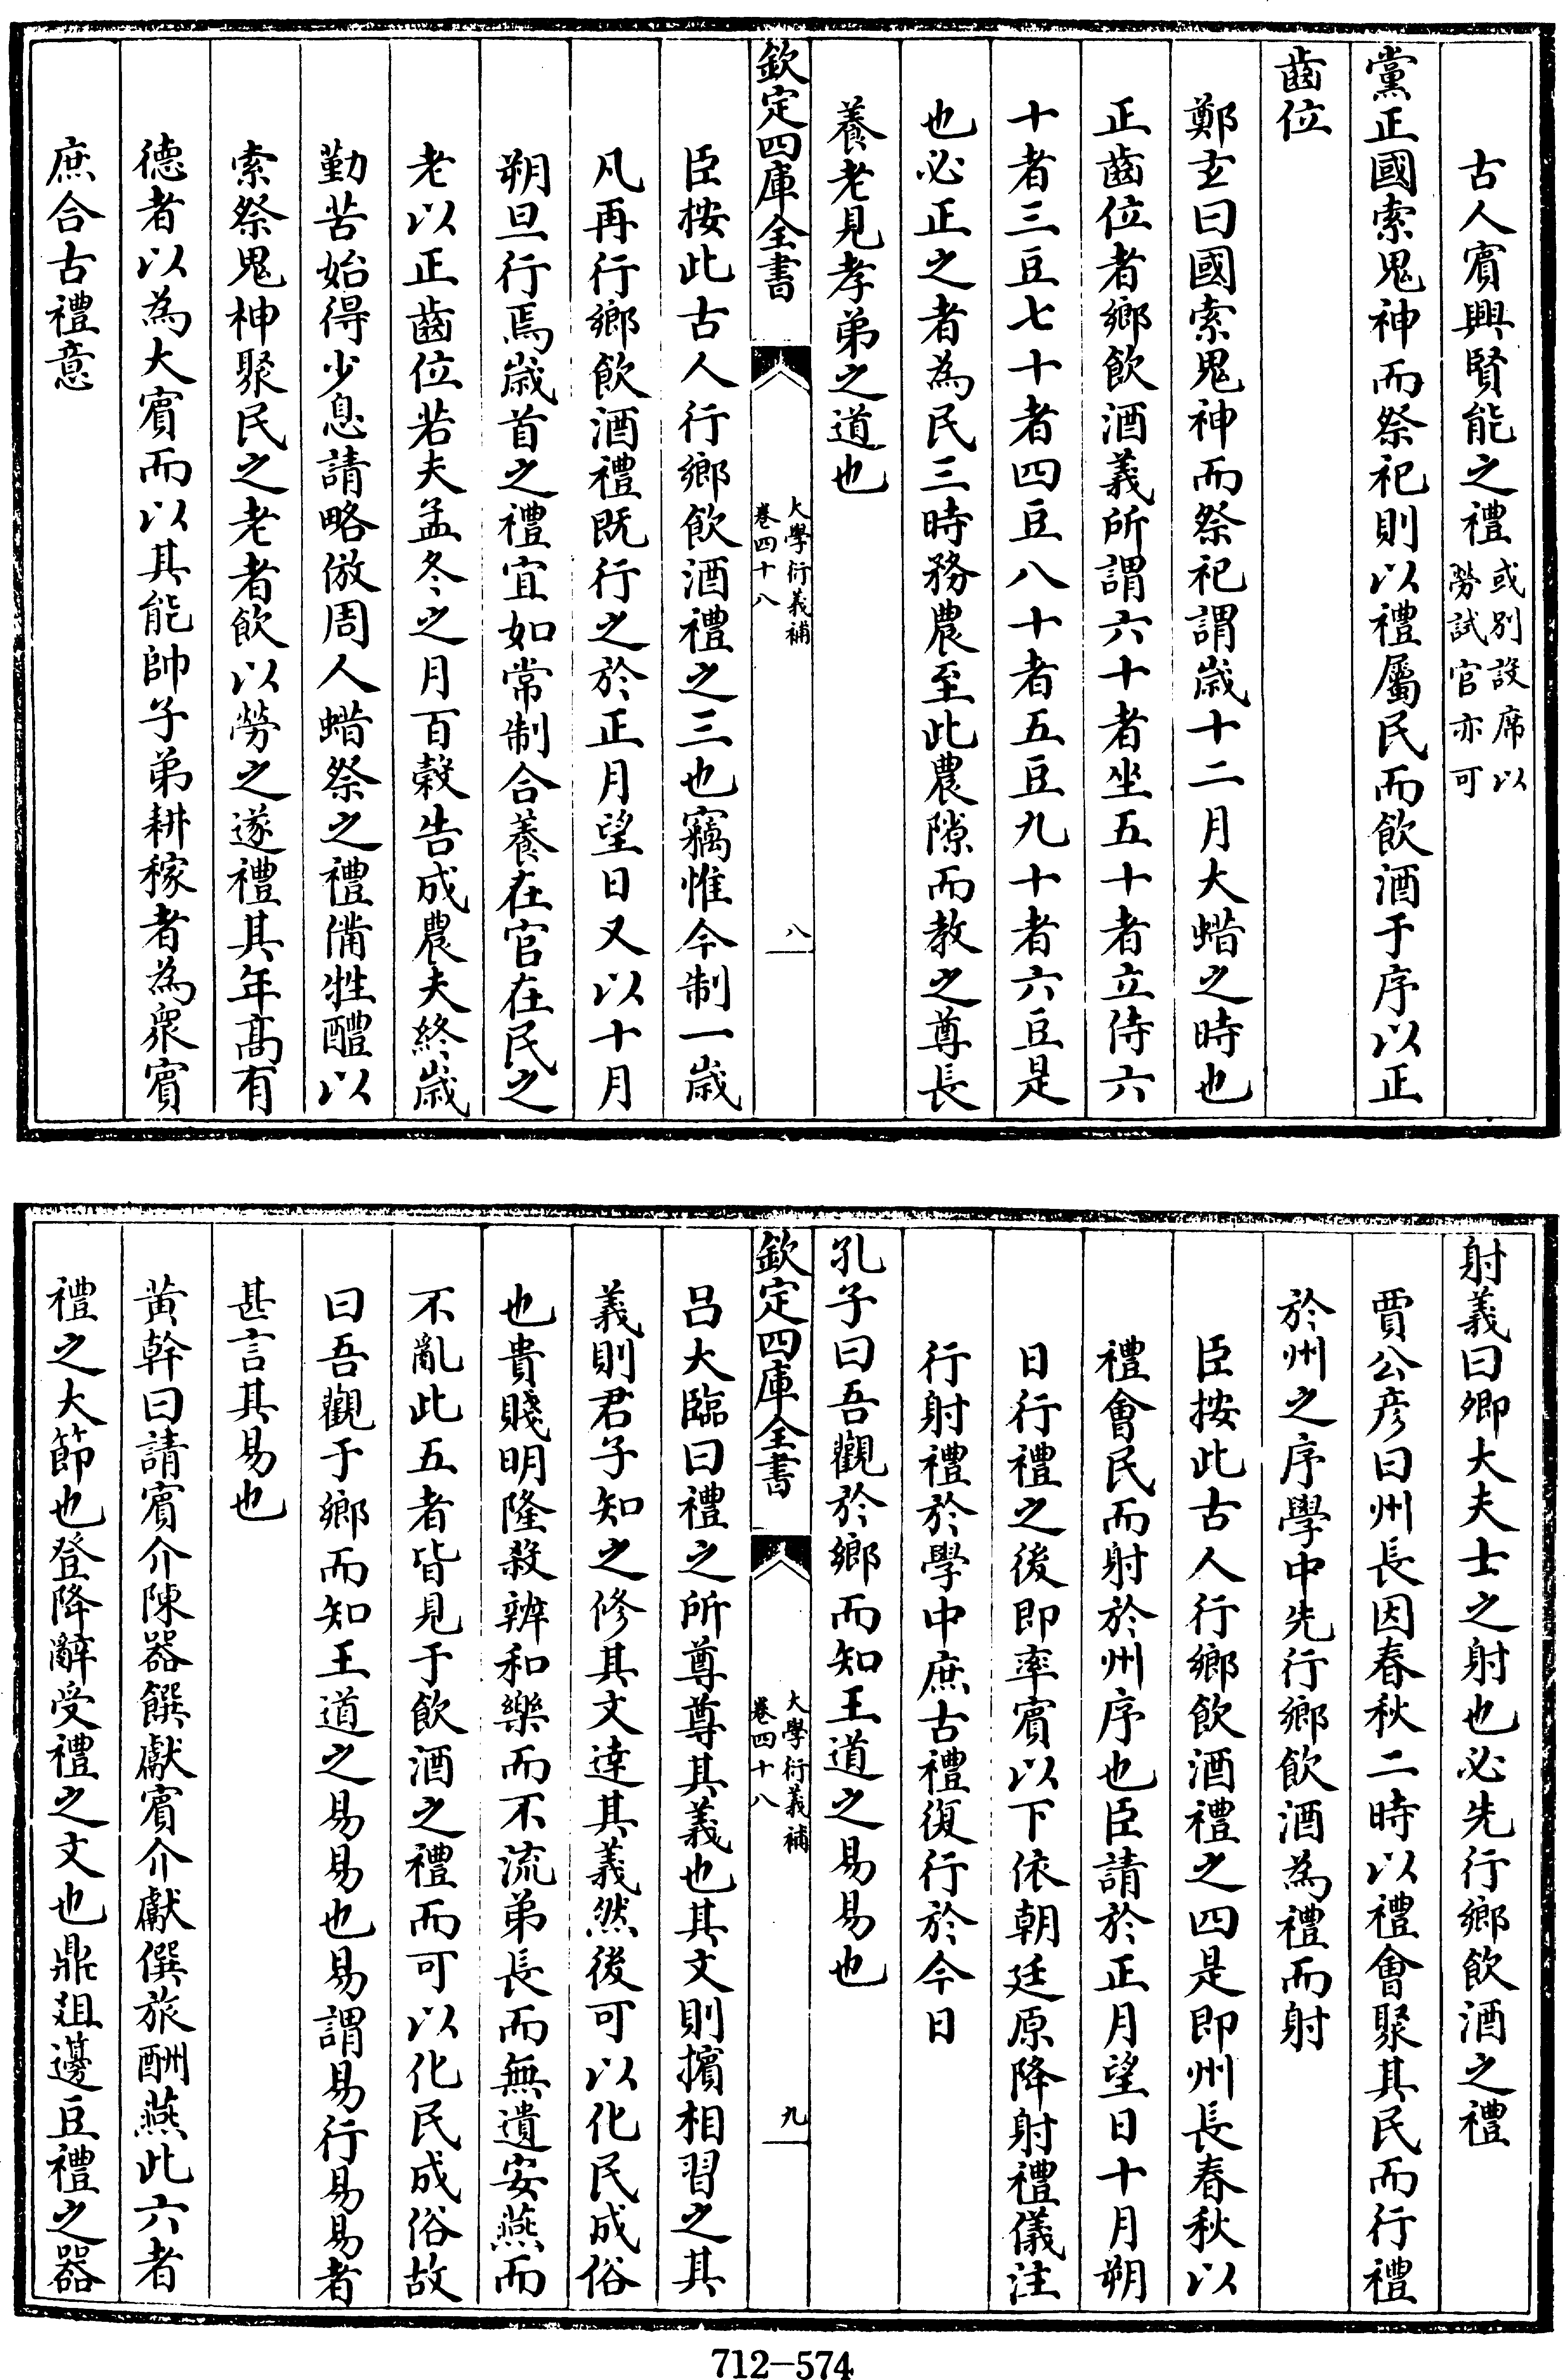 古人賓興賢能之禮或别設席以勞試官亦可
黨正國索鬼神而祭祀則以禮屬民而飲酒于序以正
齒位
鄭玄曰國索鬼神而祭祀謂歲十二月大蜡之時也
正齒位者鄉飲酒義所謂六十者坐五十者立侍六
十者三豆七十者四豆八十者五豆九十者六豆是
也必正之者為民三時務農至此農隙而教之尊長
養老見孝弟之道也
欽定四庫全書
大學衍義補
卷四十八
八
臣按此古人行鄉飲酒禮之三也竊惟今制一歲
凡再行鄉飲酒禮既行之於正月望日又以十月
朔旦行焉歲首之禮宜如常制合養在官在民之
老以正齒位若夫孟冬之月百穀告成農夫終歲
勤苦始得少息請略倣周人蜡祭之禮備牲醴以
索祭鬼神聚民之老者飲以勞之遂禮其年高有
德者以為大賓而以其能帥子弟耕稼者為衆賓
庶合古禮意
射義曰卿大夫士之射也必先行鄉飲酒之禮
賈公彥曰州長因春秋二時以禮會聚其民而行禮
於州之序學中先行鄉飲酒為禮而射
臣按此古人行鄉飲酒禮之四是即州長春秋以
禮會民而射於州序也臣請於正月望日十月朔
日行禮之後即率賓以下依朝廷原降射禮儀注
行射禮於學中庶古禮復行於今日
孔子曰吾觀於鄉而知王道之易易也
欽定四庫全書
大學衍義補
卷四十八
九
呂大臨曰禮之所尊尊其義也其文則擯相習之其
義則君子知之修其文達其義然後可以化民成俗
也貴賤明隆殺辨和樂而不流弟長而無遺安燕而
不亂此五者皆見于飲酒之禮而可以化民成俗故
曰吾觀于鄉而知王道之易易也易謂易行易易者
甚言其易也
黃幹曰請賓介陳器饌獻賓介獻僎旅酬燕此六者
禮之大節也登降辭受禮之文也鼎俎籩豆禮之器
712-574